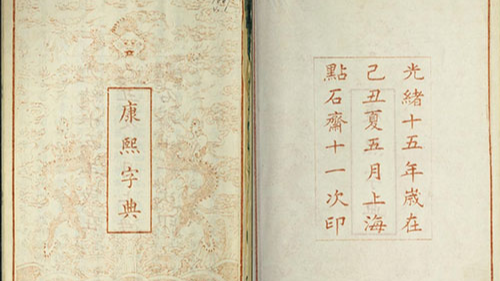 康熙字典
光緒十五年歲在
己丑夏五月上海
點石齋十一次印